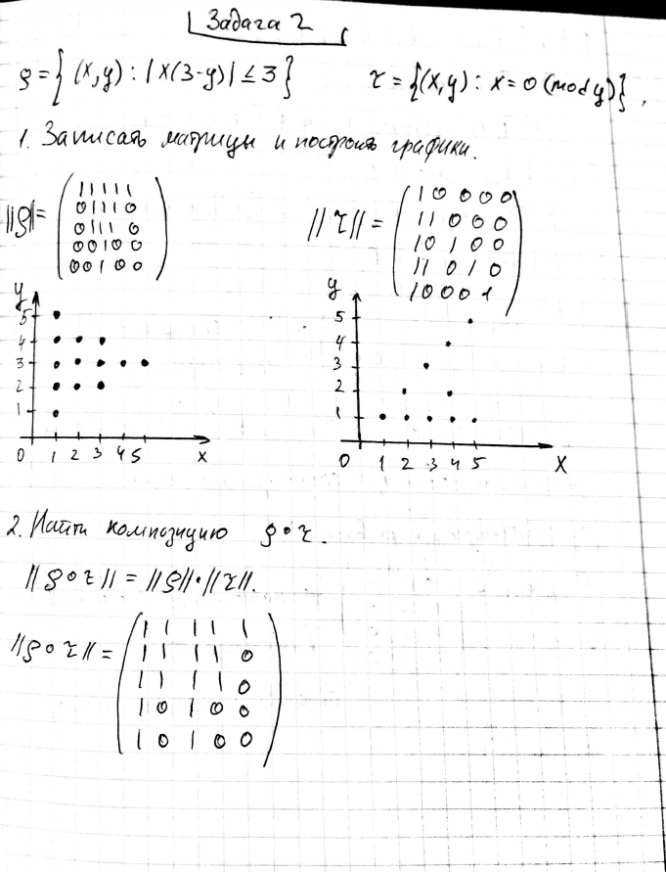 Задача 2
ρ = { (x,y) : |x(3-y)| ≤ 3 } τ = {(x,y) : x = 0 (mod y)},
1. Записать матрицы и построить графики.
||ρ|| =
1 1 1 1 1
0 1 1 1 0
0 1 1 1 0
0 0 1 0 0
0 0 1 0 0
||τ|| =
1 0 0 0 0
1 1 0 0 0
1 0 1 0 0
1 1 0 1 0
1 0 0 0 1
y
5
4
3
2
1
0 1 2 3 4 5 x
y
5
4
3
2
1
0 1 2 3 4 5 X
2. Найти композицию ρ∘τ.
||ρ∘τ|| = ||ρ||·||τ||.
||ρ∘τ|| =
1 1 1 1 1
1 1 1 1 0
1 1 1 1 0
1 0 1 0 0
1 0 1 0 0